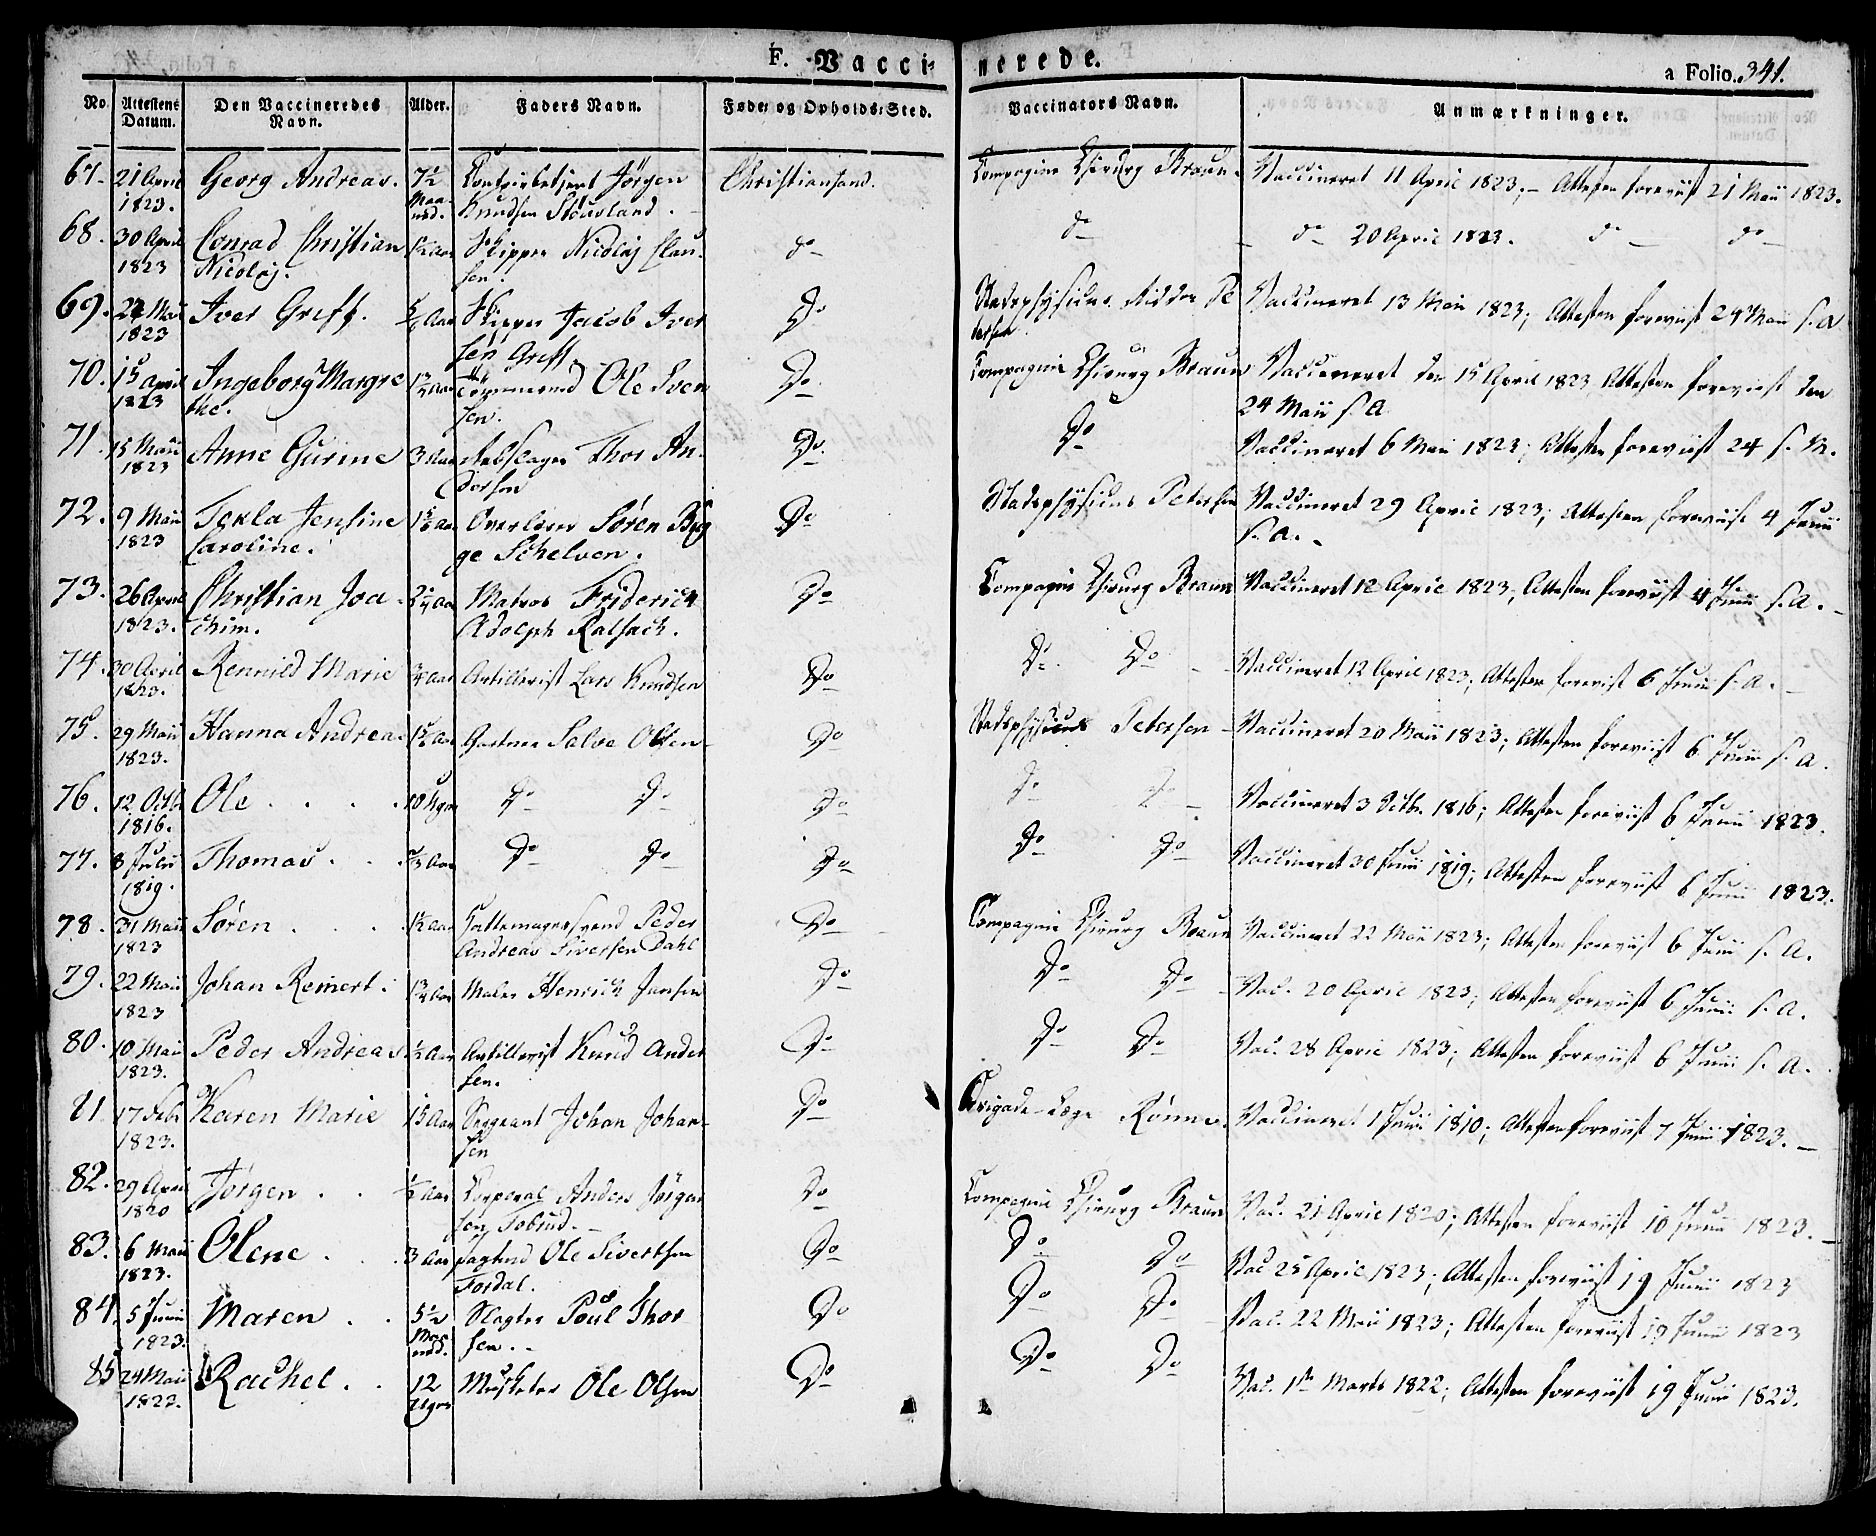 F. Vaccinerede.
a Folio. 341.
No. Attestens Datum. Den Vaccineredes Navn. Alder. Faders Navn. Føde- og Opholds-Sted. Vaccinators Navn. Anmærkninger.
67. 21 April 1823. Georg Andreas. 7½ Maaned. Jørgen Knudsen Christiansand. Compagnie Chirurg Braun. Vaccineret 11 April 1823, Attesten foreviist 21 Maii 1823.
68. 30 April 1823 Conrad Christian Nicolaj. Skipper Nicolaj Clausen. do do do 20 April 1823. do do
69. 24 Maii 1823 Iver Greff. Skipper Jacob Iversen Greff Do Stadsphysicus, Ridder Petersen Vaccineret 13 Maii 1823; Attesten foreviist 24 Maii s. A
70. 15 April 1823 Ingeborg Margrethe. Tømmermd Ole Svensen. Do Compagnie Chirurg Braun Vaccineret den 15 April 1823, Attesten foreviist den 24 Maii s. A
71. 15 Maii 1823 Anne Gurine 3 Aar Rebslager Thor Andersen Do Do Vaccineret 6 Maii 1823; Attesten foreviist 24 s. M.
72. 9 Maii 1823 Tekla Jensine Caroline. Overlærer Søren Bygge Schelven. Do Stadsphysicus Petersen Vaccineret 29 April 1823; Attesten foreviist 4 Junii s. A.
73. 26 April 1823. Christian Joachim. Matros Friderich Adolph Kalsach. Do Compagnie Chirurg Braun Vaccineret 12 April 1823; Attesten foreviist 4 Junii s. A.
74. 30 April 1823. Rennild Marie ¾ Aar Artillerist Lars Knudsen Do Do Do Vaccineret 12 April 1823; Attesten foreviist 6 Junii s. A.
75. 29 Maii 1823. Hanna Andrea Salve Olsen Do Stadsphysicus Petersen Vaccineret 20 Maii 1823; Attesten foreviist 6 Junii s. A.
76. 12 Octb 1816. Ole 10 Uger Do Do Do Do Do Vaccineret 3 Octbr. 1816; Attesten foreviist 6 Junii 1823.
77. 8 Julii 1819. Thomas Do Do Do Do Do Vaccineret 30 Junii 1819; Attesten foreviist 6 Junii 1823.
78. 31 Maii 1823 Søren Peder Andreas Siversen Dahl Do Compagnie Chirurg Braun Vaccineret 22 Maii 1823; Attesten foreviist 6 Junii s. A.
79. 22 Maii 1823 Johan Reinert. Maler Henrich Jansen Do Do Do Vac. 20 April 1823; Attesten foreviist 6 Junii s. A.
80. 10 Maii 1823. Peder Andreas ½ Aar Artillerist Knud Andersen. Do Do Do Vac. 28 April 1823; Attesten foreviist 6 Junii s. A.
81 17 Febr 1823. Karen Marie 15 Aar Sergeant Johan Johansen Do Brigade-Læge Rønne. Vaccineret 1 Junii 1810; Attesten foreviist 7 Junii 1823.
82. 29 April 1820 Jørgen ½ Aar Corporal Anders Jørgensen Do Compagnie Chirurg Braun Vac. 21 April 1820; Attesten foreviist 10 Junii 1823.
83. 6 Maii 1823. Olene 3 Aar Ole Sivertsen Fordal. Do Do Do Vac 25 April 1823; Attesten foreviist 19 Junii 1823
84. 5 Junii 1823. Maren 5½ Maaned. Slagter Poul Thorsen. Do Do Do Vac. 22 Maii 1823; Attesten foreviist 19 Junii 1823
85 24 Maii 1822. Rachel 12 Uger Musketer Ole Olsen Do Do Do Vac. 1ste Marts 1822; Attesten foreviist 19 Junii 1823.